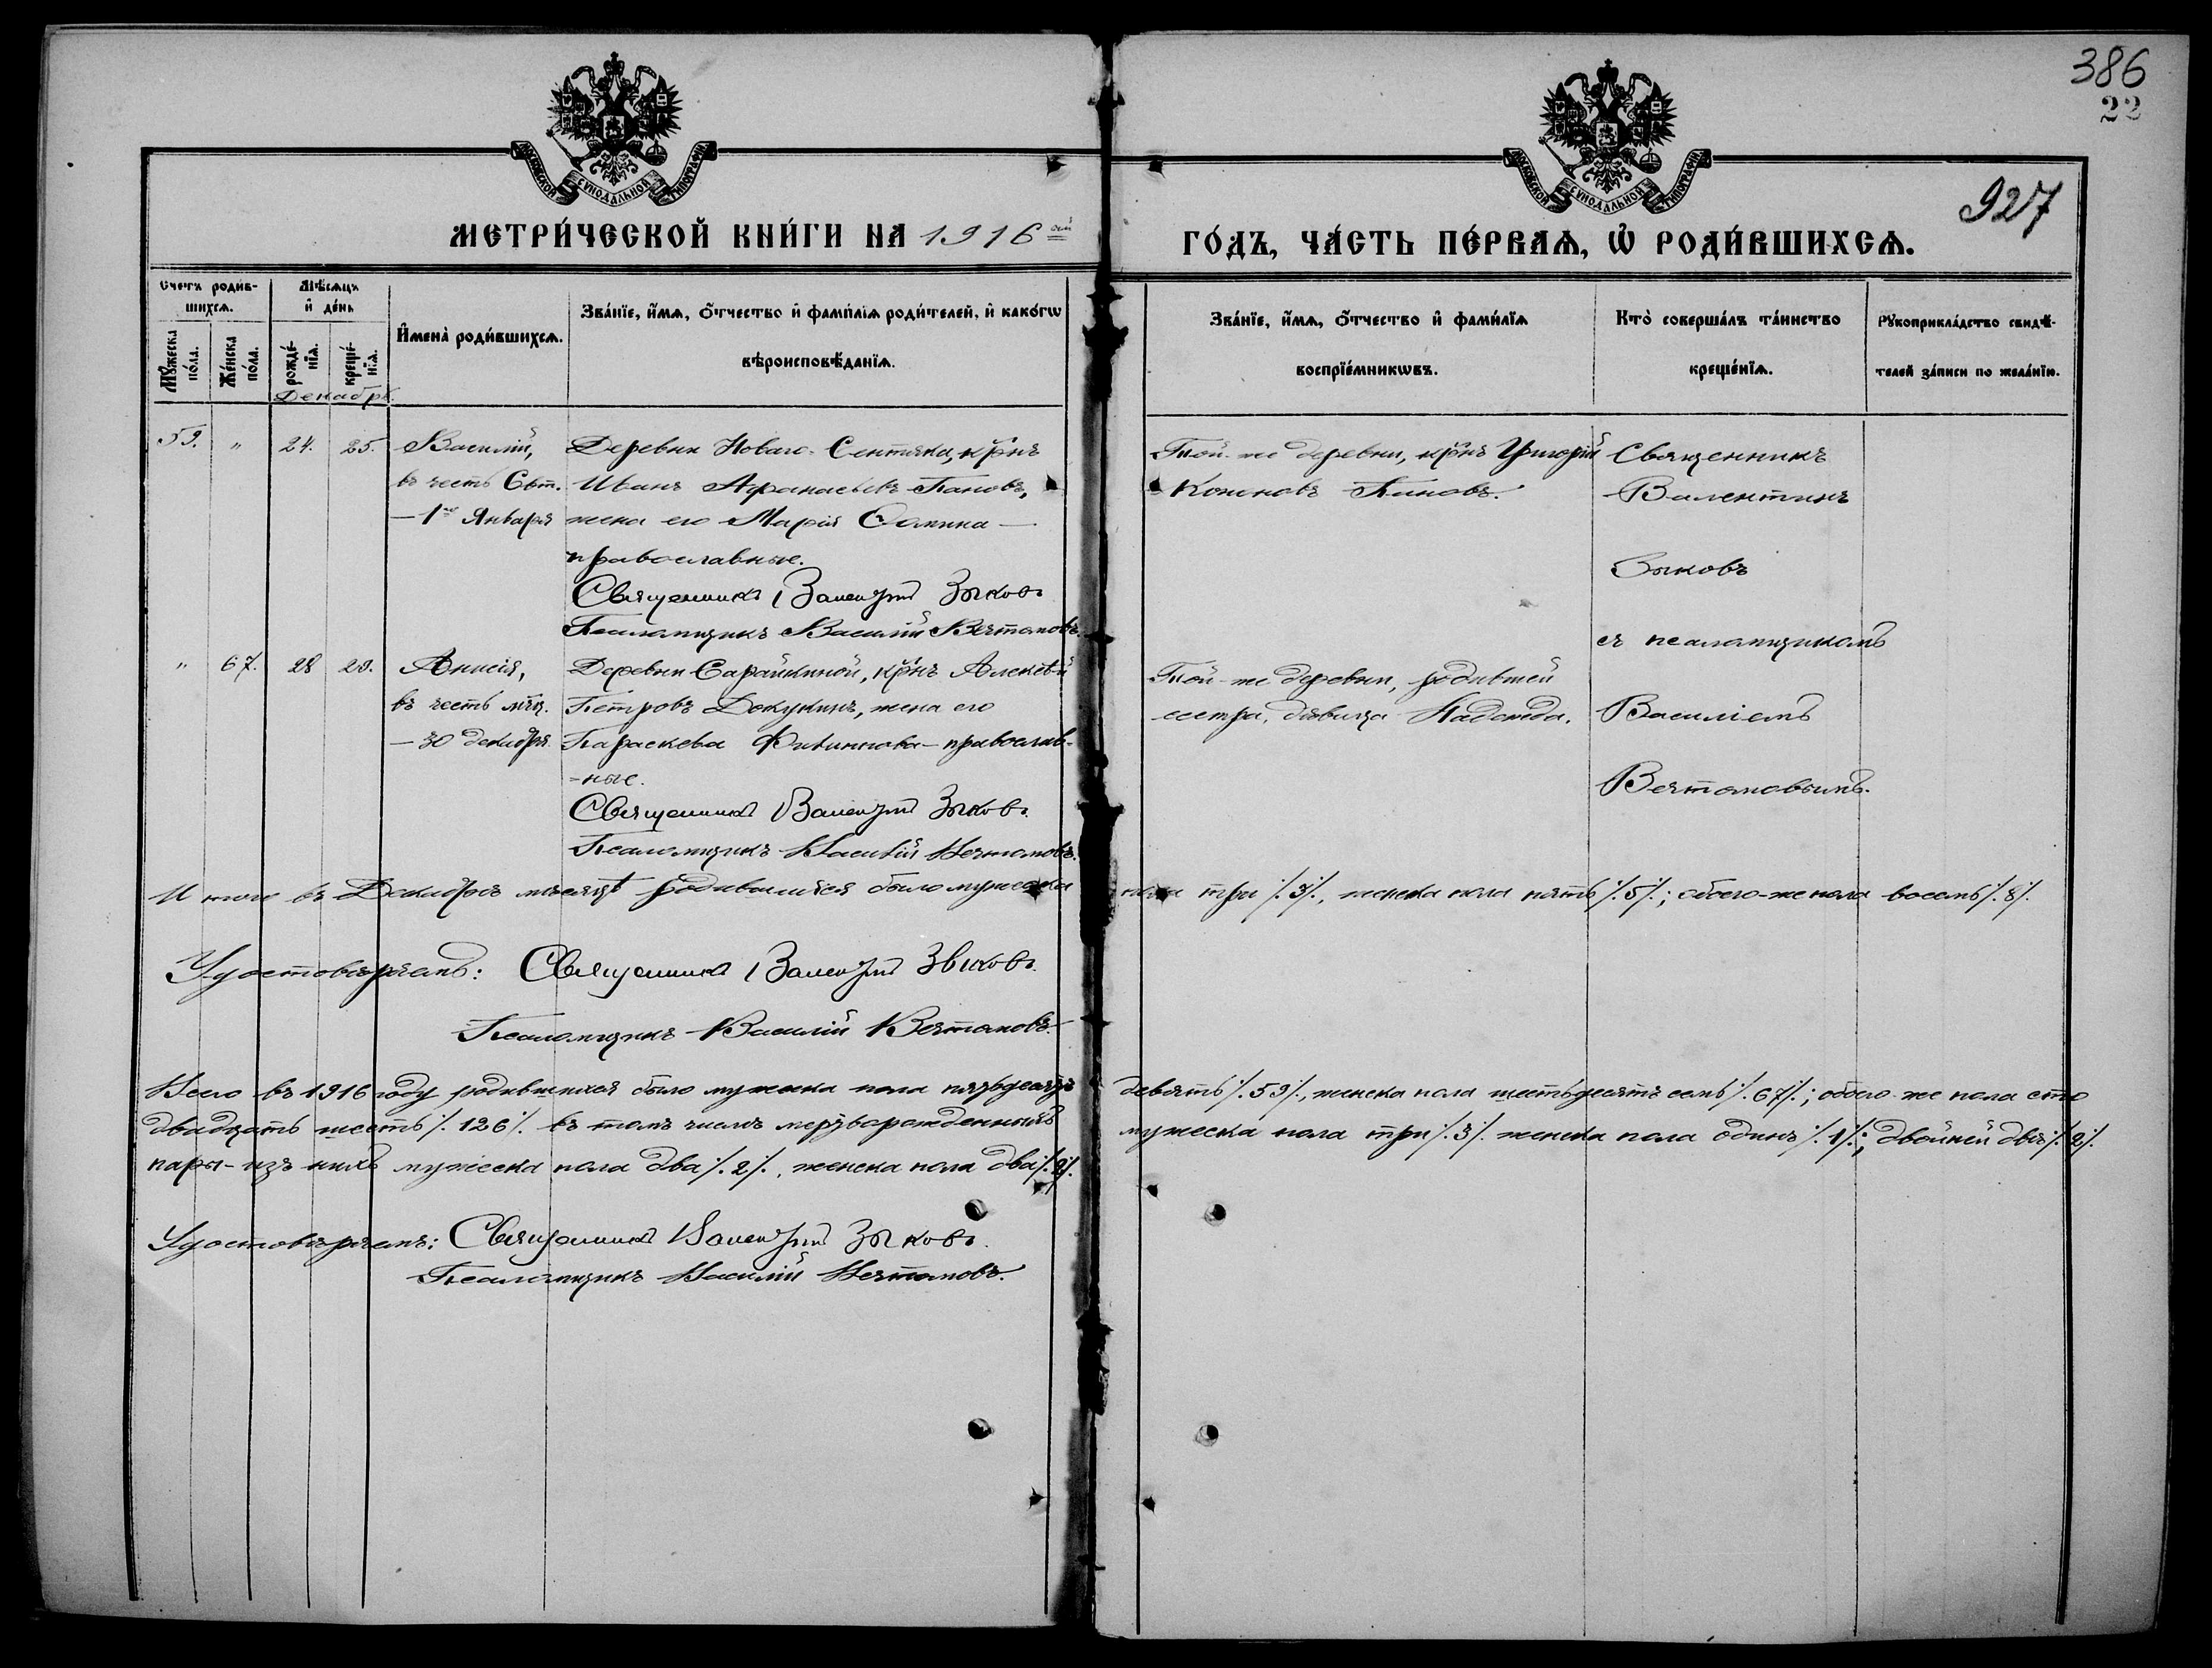 386
22
927
МОСКОВСКОЙ СУНОДАЛЬНОЙ ТИПОГРАФІИ
МОСКОВСКОЙ СУНОДАЛЬНОЙ ТИПОГРАФІИ
МЕТРИ́ЧЕСКОЙ КНИ́ГИ НА 1916 ый
ГО́ДЪ, ЧА́СТЬ ПЕ́РВАѦ, Ѽ РОДИ́ВШИХСѦ.
Счетъ роди́в-
шихсѧ.
Мꙋ́жеска по́ла.
Же́нска по́ла.
Мѣ́сѧцъ
и҆ де́нь
рожде́-
нїѧ.
креще́-
нїѧ.
И҆мена̀ роди́вшихсѧ.
Зва́нїе, и҆́мѧ, ѻ҆́тчество и҆ фами́лїѧ роди́телей, и҆ како́гѡ
вѣроисповѣ́данїѧ.
Зва́нїе, и҆́мѧ, ѻ҆́тчество и҆ фами́лїѧ
воспрїе́мникѡвъ.
Кто̀ соверша́лъ та́инство
креще́нїѧ.
Рꙋкоприкла́дство свидѣ́-
телей за́писи по жела́нїю.
Декабрь.
59. " 24. 25.
Василій,
въ честь Свт.
— 1го Января
Деревни Новаго Сентяка, кр-нъ
Иванъ Афанасьевъ Пановъ,
жена его Марія Ѳомина —
православные.
Священникъ Валентинъ Зыковъ
Псаломщикъ Василій Вечтомовъ.
Той-же деревни, кр-нъ Григорій
Кононовъ Пановъ.
Священникъ
Валентинъ
Зыковъ
съ псаломщикомъ
Василіемъ
Вечтомовымъ.
" 67. 28 29.
Анисія,
въ честь мчц.
— 30 декабря.
Деревни Сарайкиной, кр-нъ Алексѣй
Петровъ Докукинъ, жена его
Параскева Филиппова — православ-
-ные.
Священникъ Валентинъ Зыковъ.
Псаломщикъ Василій Вечтомовъ.
Той-же деревни, родившей
сестра, дѣвица Надежда.
Итого въ Декабрѣ мѣсяцѣ родившихся было мужеска пола три /.3/., женска пола пять /.5/.; обоего-же пола восемь /.8/.
Удостовѣряемъ: Священникъ Валентинъ Зыковъ.
Псаломщикъ Василій Вечтомовъ.
Всего въ 1916 году родившихся было мужеска пола пятьдесятъ девять /.59/., женска пола шестьдесятъ семь /.67/.; обоего же пола сто
двадцать шесть /.126/. въ томъ числѣ мертворожденныхъ мужеска пола три /.3/. женска пола одинъ /.1/.; двойней двѣ /.2/.
пары - изъ нихъ мужеска пола два /.2/., женска пола два /.2/.
Удостовѣряемъ: Священникъ Валентинъ Зыковъ.
Псаломщикъ Василій Вечтомовъ.